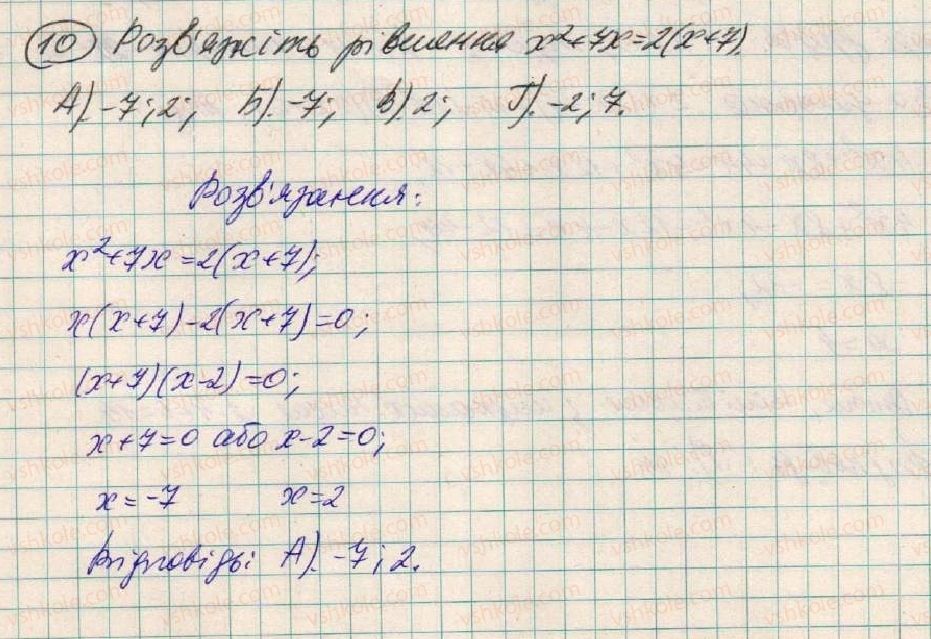 10 Розв'яжіть рівняння x²+7x=2(x+7).
А). -7; 2; Б). -7; В). 2; Г). -2; 7.
Розв'язання:
x²+7x=2(x+7);
x(x+7)-2(x+7)=0;
(x+7)(x-2)=0;
x+7=0 або x-2=0;
x=-7 x=2
Відповідь: А). -7; 2.